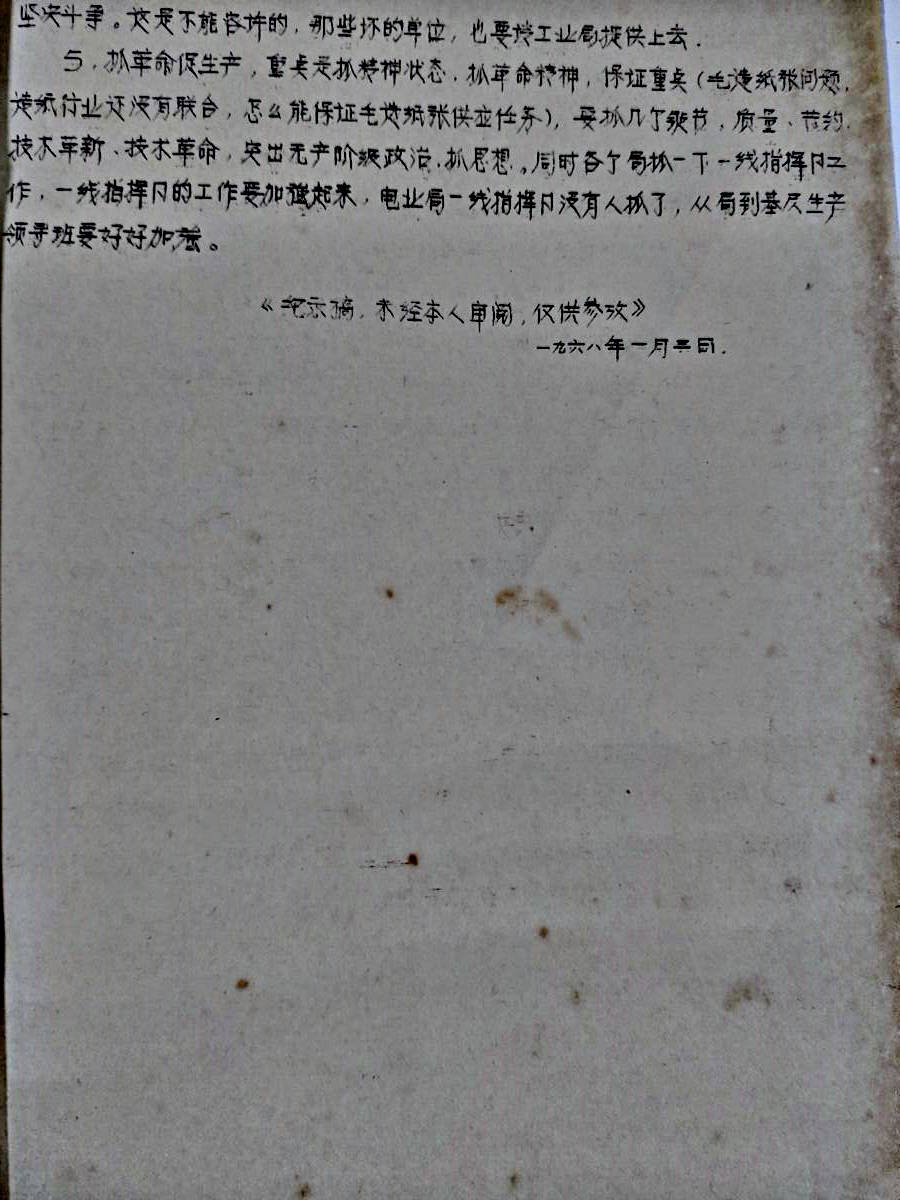 坚决斗争。这是不能容许的，那些坏的单位，也要按工业局提供上去.
5，抓革命促生产，重点是抓精神状态，抓革命精神，保证重点（毛选纸张问题，
造纸行业还没有联合，怎么能保证毛选纸张供应任务），要抓几个环节，质量、节约、
技术革新、技术革命，突出无产阶级政治，抓思想。同时各个局抓一下一线指挥门工
作，一线指挥门的工作要加强起来，电业局一线指挥门没有人抓了，从局到基层生产
领导班要好好加强。
《记录稿，未经本人审阅，仅供参攷》
一九六八年一月三日.